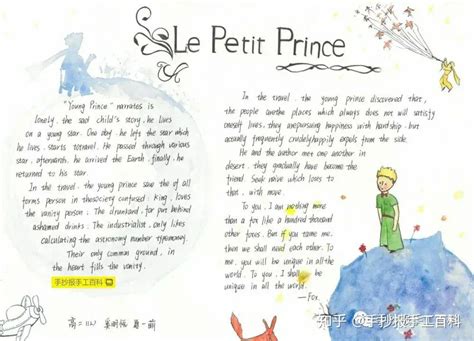 Le Petit Prince
"Young Prince" narrates is
lonely, the sad child's story, he lives
on a young star. One day, he lefts the star which
he lives, starts totravel. He passed through various
star, afterwards, he arrived the Earth, finally, he
returned to his star.
In the travel, the young prince saw the of all
forms person in thesociety confused: King, loves
the vanity person. The drunkard, for put behind
ashamed drinks. The industrialist, only likes
calculating the astronomy number
Their only common ground, in
the heart fills the vanity.
手抄报手工百科
高二
In the travel, the young prince discovered that,
the people arethe places which always does not will satisfy
oneself lives, they arepursuing happiness with hardship, but
actually frequently crudelyhappily expels from the side.
He and the author met one another in
desert, they gradually have become
friend. Seek naive which loses to
that, with move.
To you, I am nothing more
than a fox like a hundred thousand
other foxes. But if you tame me,
then we shall need each other. To
me, you will be unique in all the
world. To you, I shall be
unique in all the world.
—Fox.
知乎 @手抄报手工百科